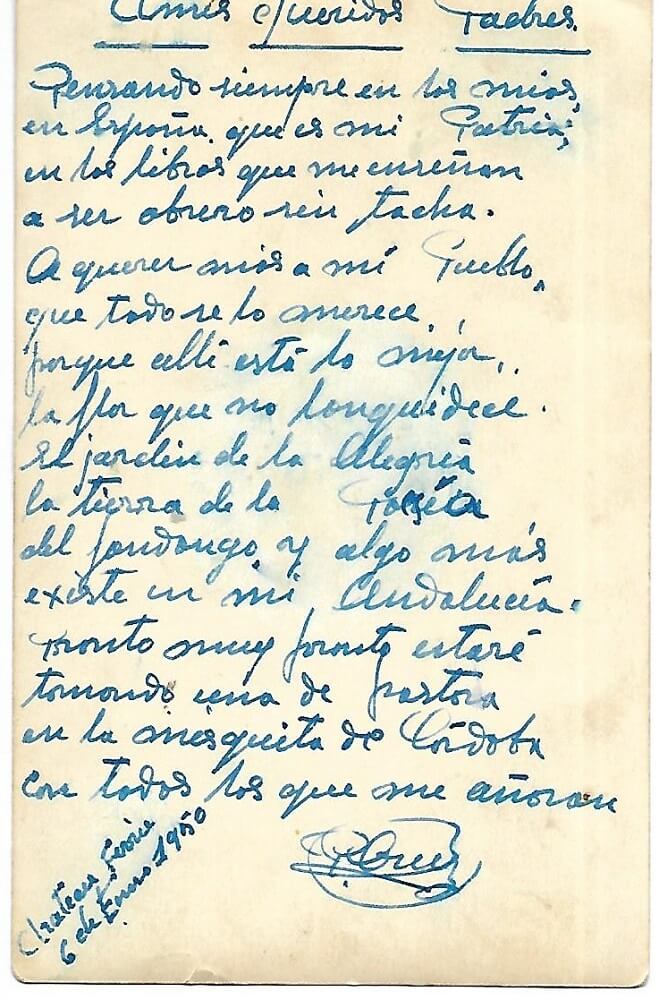 Amis queridos Padres.
Pensando siempre en los mios,
en España, que es mi Patria;
en los libros que me enseñan
a ser obrero sin tacha.
A querer más a mi Pueblo,
que todo se lo merece,
porque allí está lo mejor,
la flor que no languidece.
El jardín de la Alegría
la tierra de la Poesía
del fandango, y algo más
existe en mi Andalucía.
Pronto muy pronto estaré
tomando una de pastora
en la mesquita de Córdoba
con todos los que me añoran
Chateau
6 de Enero 1950